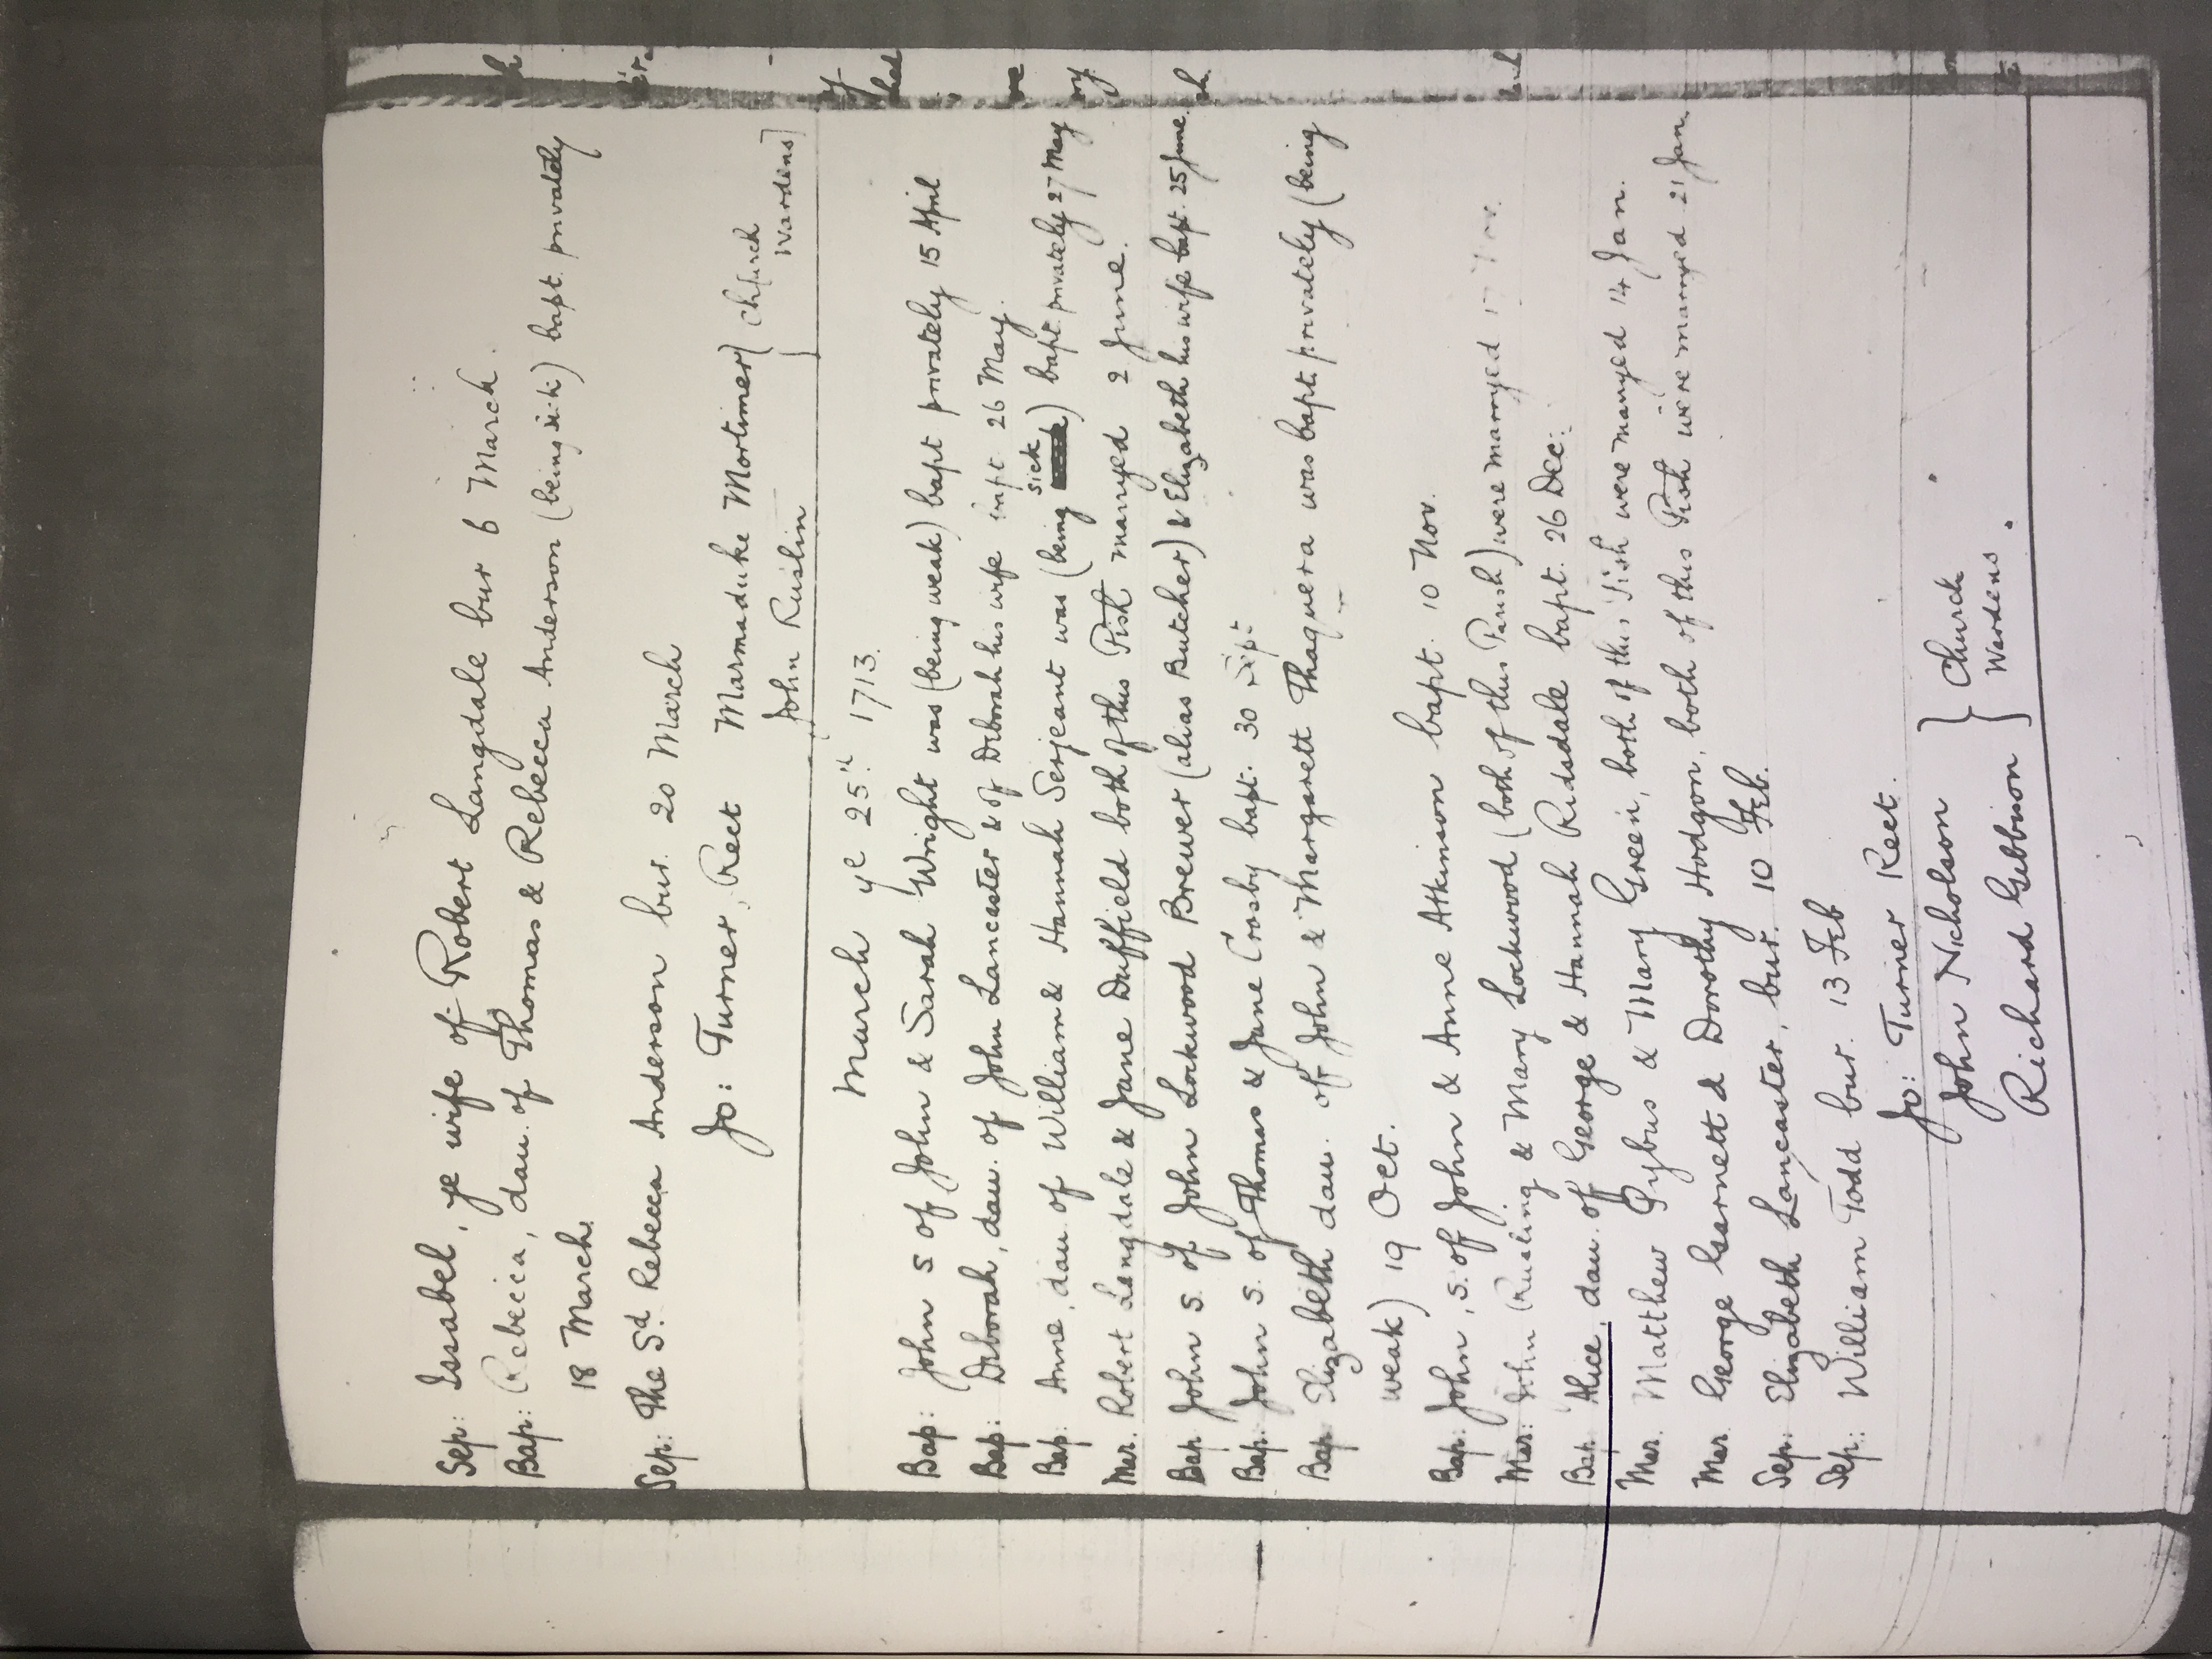 Sep: Issabel, ye wife of Robert Langdale bur 6 March.
Bap: Rebecca, dau. of Thomas & Rebecca Anderson (being sick) bapt. privately
18 March.
Sep: The Sd. Rebecca Anderson bur. 20 March
Jo: Turner, Rect Marmaduke Mortimer } Church
John Ruslin Wardens]
March ye 25th 1713.
Bap: John s of John & Sarah Wright was (being weak) bapt privately 15 April
Bap: Deborah, dau. of John Lancaster & of Deborah his wife bapt. 26 May.
Bap: Anne, dau. of William & Hannah Serjeant was (being sick) bapt. privately 27 May
Mar. Robert Langdale & Jane Duffield both of this Pish marryed 2 June.
Bap. John s. of John Lockwood Brewer (alias Butcher) & Elizabeth his wife bapt. 25 June.
Bap: John s. of Thomas & Jane Crosby bapt. 30 Sept
Bap. Elizabeth dau. of John & Margarett Thaquera was bapt. privately (being
weak) 19 Oct.
Bap: John, s. of John & Anne Atkinson bapt. 10 Nov.
Mar: John Rusling & Mary Lockwood (both of this Parish) were marryed Nov.
Bap. Alice, dau. of George & Hannah Ridsdale bapt. 26 Dec:
Mar. Matthew Pybus & Mary Green, both of this Pish were marryed 14 Jan.
Mar. George Garnett & Dorothy Hodgon, both of this Pish were marryed 21 Jan.
Sep: Elizabeth Lancaster, bur. 10 Feb.
Sep: William Todd bur. 13 Feb
Jo: Turner Rect.
John Nicholson } Church
Richard Gibbison Wardens.